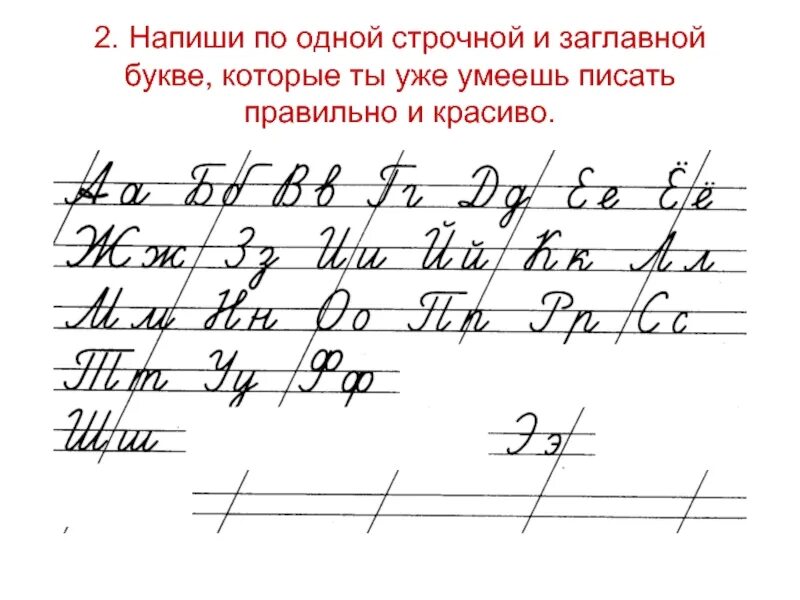 2. Напиши по одной строчной и заглавной
букве, которые ты уже умеешь писать
правильно и красиво.
Аа Бб Вв Гг Дд Ее Ёё
Жж Зз Ии Йй Кк Лл
Мм Нн Оо Пп Рр Сс
Тт Уу Фф
Шш Ээ